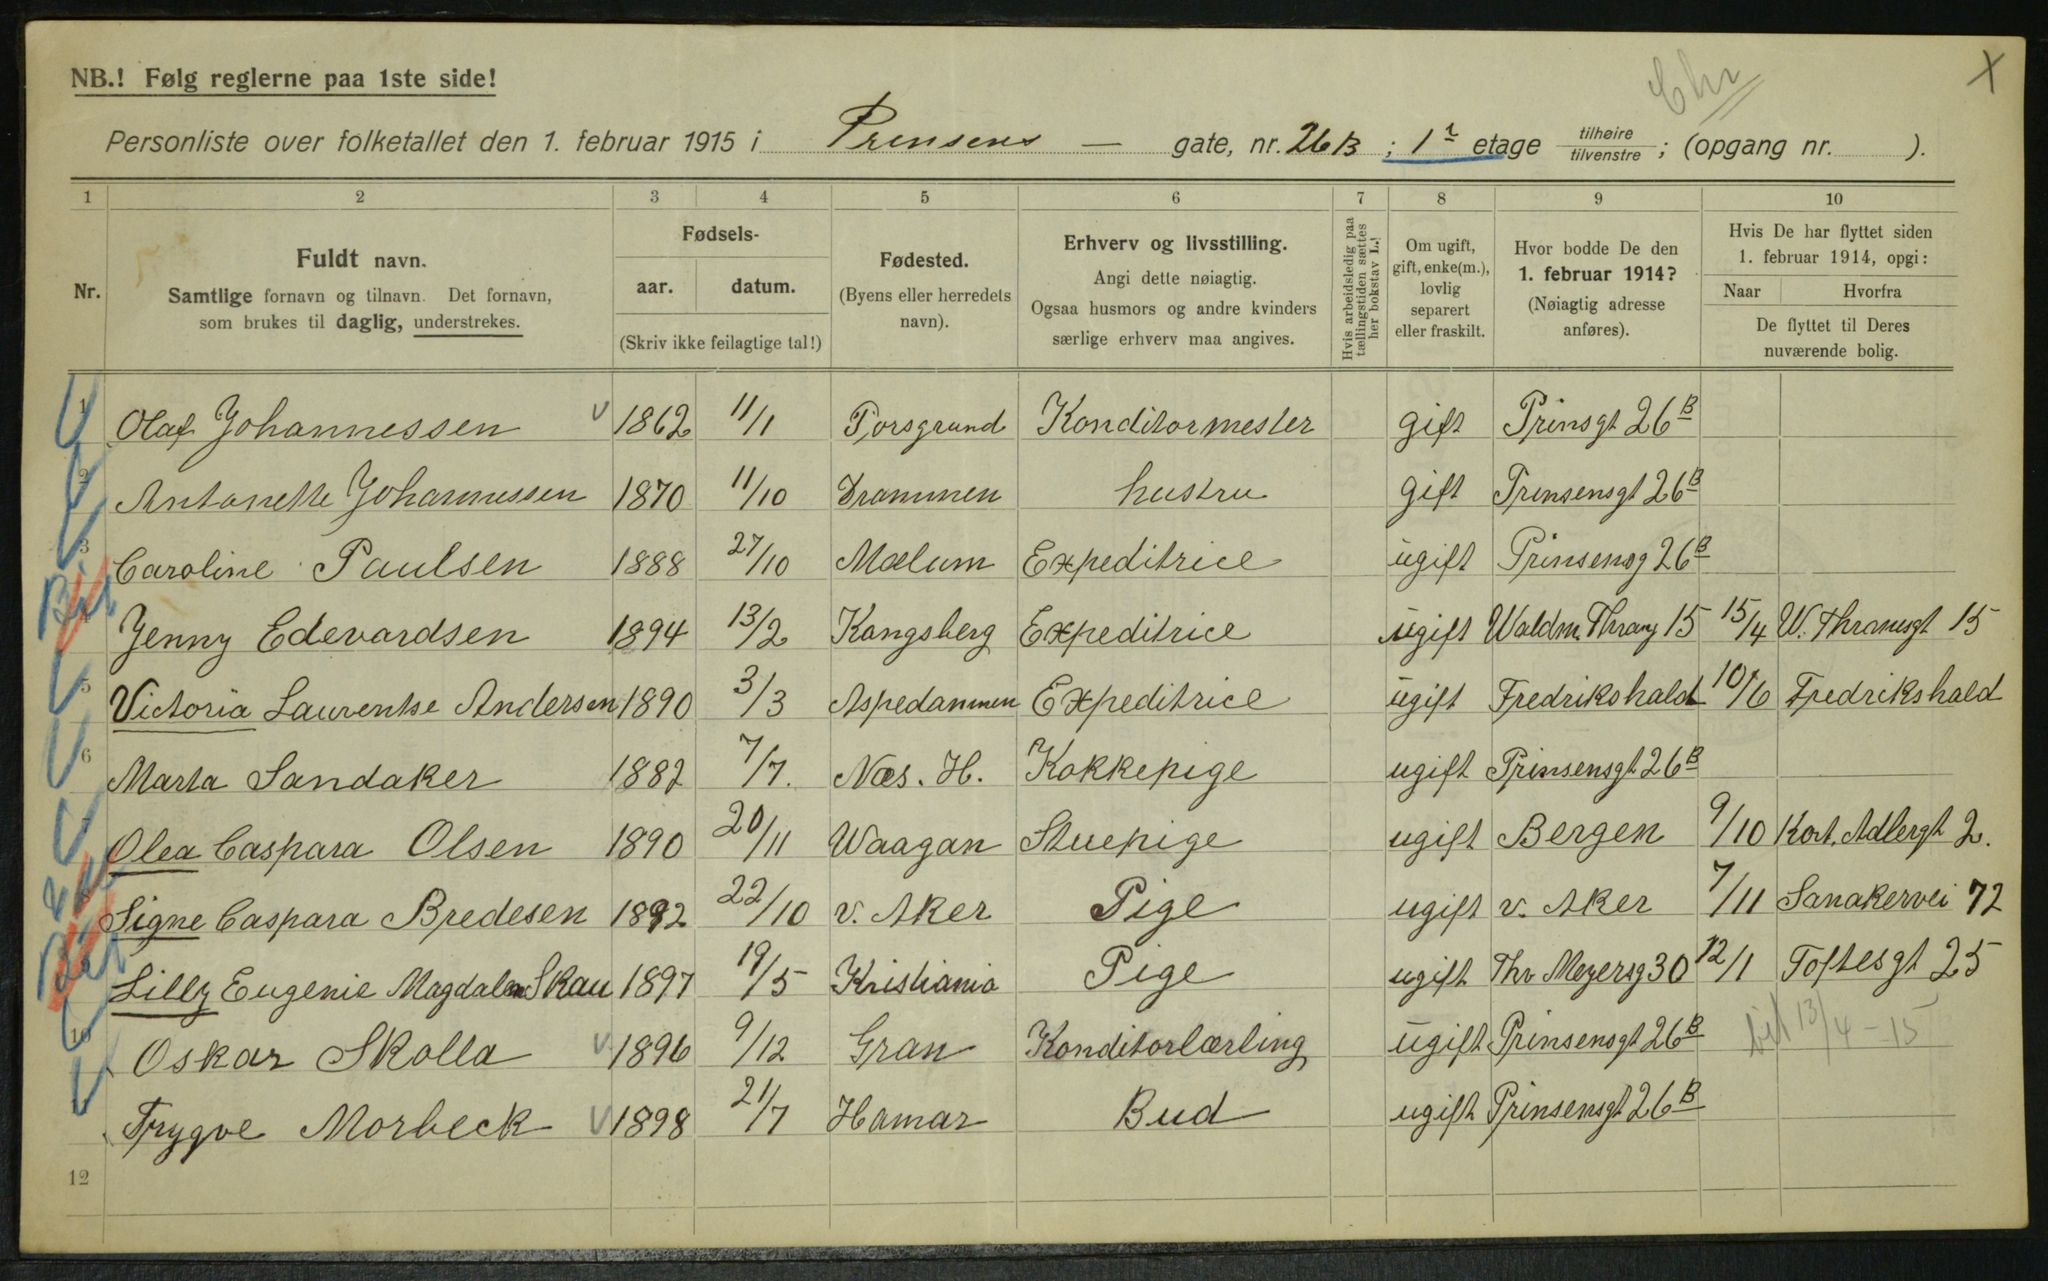 Chr X
NB.! Følg reglerne paa 1ste side!
Personliste over folketallet den 1. februar 1915 i Prinsens — gate, nr. 26B ; 1ˢ etage tilhøire / tilvenstre ; (opgang nr. ).
1 2 3 4 5 6 7 8 9 10
Nr.
Fuldt navn.
Samtlige fornavn og tilnavn. Det fornavn,
som brukes til daglig, understrekes.
Fødsels-
aar. datum.
(Skriv ikke feilagtige tal!)
Fødested.
(Byens eller herredets
navn).
Erhverv og livsstilling.
Angi dette nøiagtig.
Ogsaa husmors og andre kvinders
særlige erhverv maa angives.
Hvis arbeidsledig paa
tællingstiden sættes
her bokstav L.!
Om ugift,
gift, enke(m.),
lovlig
separert
eller fraskilt.
Hvor bodde De den
1. februar 1914?
(Nøiagtig adresse
anføres).
Hvis De har flyttet siden
1. februar 1914, opgi:
Naar Hvorfra
De flyttet til Deres
nuværende bolig.
1 Olaf Johannessen 1862 11/1 Porsgrund Konditormester gift Prinsgt 26B
2 Antonette Johannessen 1870 11/10 Drammen hustru gift Prinsensgt 26B
3 Caroline Paulsen 1888 27/10 Mælum Expeditrice ugift Prinsensg 26B
4 Jenny Edevardsen 1894 13/2 Kongsberg Expeditrice ugift Waldm. Thrany 15 15/4 W. Thranesgt 15
5 Victoria Laurentse Andersen 1890 3/3 Aspedammen Expeditrice ugift Fredrikshald 10/6 Fredrikshald
6 Marta Sandaker 1882 7/7. Næs. H. Kokkepige ugift Prinsensgt 26B
Olea Caspara Olsen 1890 20/11 Waagan Stuepige ugift Bergen 9/10 Kort. Adlergt 2.
Signe Caspara Bredesen 1892 22/10 v. Aker Pige ugift v. Aker 7/11 Sanakervei 72
Lilly Eugenie Magdalen Skau 1897 19/5 Kristiania Pige ugift Thv Meyersg 30 12/1 Toftesgt 25
10 Oskar Skolla 1896 9/12 Gran Konditorlærling ugift Prinsensgt 26B 13/4 - 15
Trygve Morbeck 1898 21/7 Hamar Bud ugift Prinsensgt 26B
12